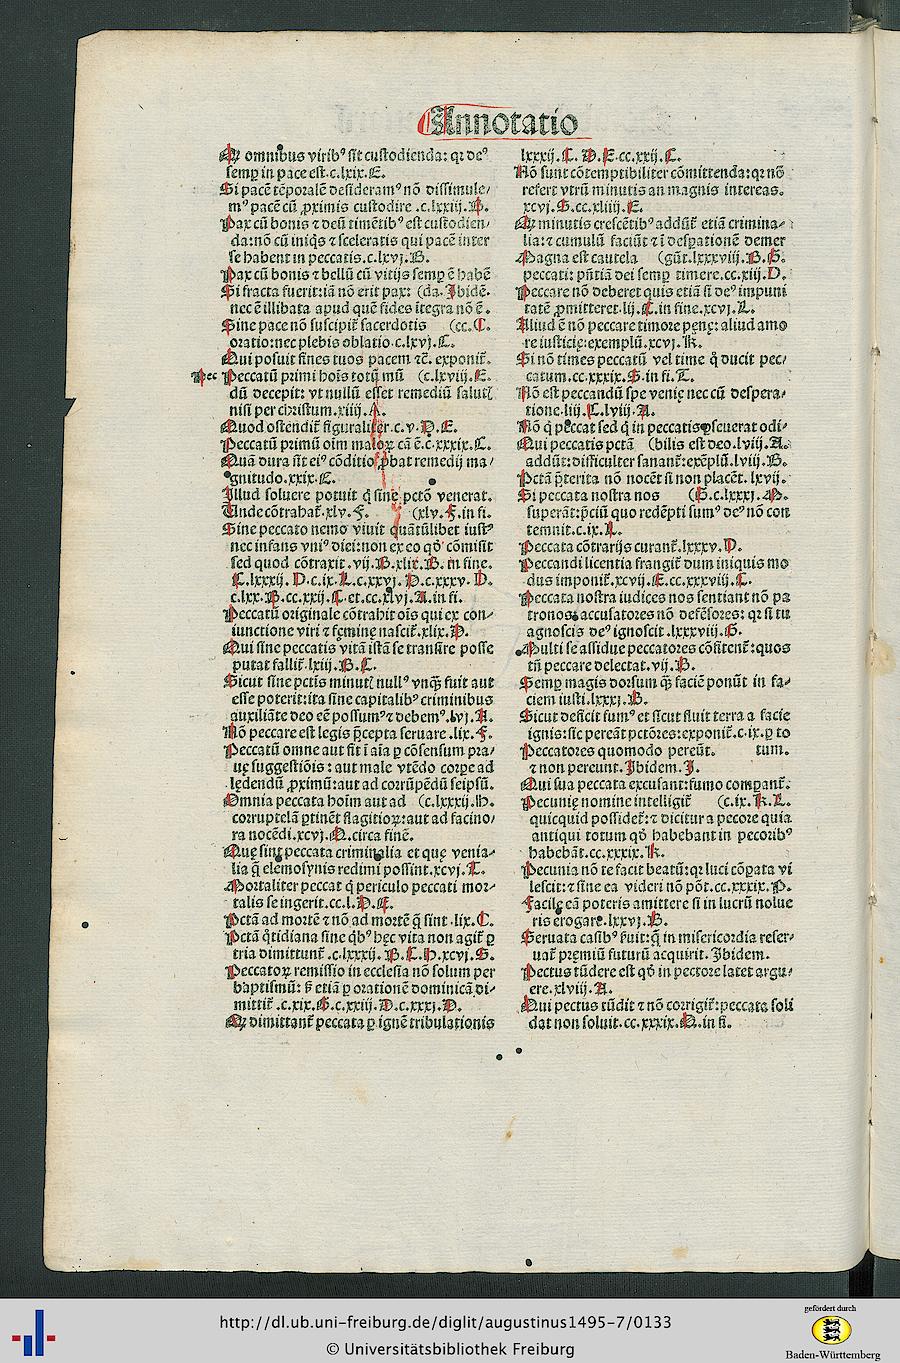 Annotatio
Qꝫ omnibus viribꝰ sit custodienda: qꝛ deꝰ
semꝑ in pace est.c.lxix.E.
Si pacē tēporalē desideramꝰ nō dissimule⸗
mꝰ pacē cū ꝓximis custodire .c.lxxiij.B.
Pax cū bonis ⁊ deū timētibꝰ est custodien⸗
da: nō cū iniq̇s ⁊ sceleratis qui pacē inter
se habent in peccatis.c.lxvj.B.
Pax cū bonis ⁊ bellū cū vitijs semꝑ ē habē
Si fracta fuerit: iā nō erit pax: (da.Ibidē.
nec ē illibata apud quē fides itegra nō ē.
Sine pace nō suscipit̄ sacerdotis (cc.C.
oratio: nec plebis oblatio.c.lxvj.C.
Qui posuit fines tuos pacem ⁊c̄. exponit̄.
Pec Peccatū primi hoīs totū mū (c.lxviij.E.
dū decepit: vt nullū esset remediū saluti
nisi per christum.xiiij.A.
Quod ostendit̄ figuraliter.c.v.D.E.
Peccatū primū oīm maloꝝ cā ē.c.xxxix.C.
Quā dura sit eiꝰ cōditio ꝓbat remedij ma⸗
gnitudo.xxix.E.
Illud soluere potuit q̇ sine pctō venerat.
Unde cōtrahat̄.xlv.F. (xlv.F.in fi.
Sine peccato nemo viuit quātūlibet iustꝰ
nec infans vniꝰ diei: non ex eo qō cōmisit
sed quod cōtraxit .vij.B.xlix.B. in fine.
C.lxxxij.D.c.ix.L.c.xxvj.D.c.xxxv.D.
c.lxx.B.cc.xxij.C.et.cc.xlvj.A.in fi.
Peccatū originale cōtrahit oīs qui ex con⸗
iunctione viri ⁊ fęminę nascit̄.xlix.D.
Qui sine peccatis vitā istā se transire posse
putat fallit̄.lxiij.B.C.
Sicut sine pctīs minutꝭ nullꝰ vnq̄ fuit aut
esse poterit: ita sine capitalibꝰ criminibus
auxiliāte deo eē possumꝰ ⁊ debemꝰ.lvj.A.
Nō peccare est legis p̄cepta seruare .lix.F.
Peccatū omne aut fit ī aīa ꝑ cōsensum pra⸗
uę suggestiōis: aut male vtēdo corꝑe ad
lędendū ꝓximū: aut ad corrūpēdū seipsū.
Omnia peccata hoīm aut ad (c.lxxxij.H.
corruptelā ꝑtinēt flagitioꝝ: aut ad facino⸗
ra nocēdi.xcvj.Q.circa finē.
Quę sint peccata criminalia et quę venia⸗
lia q̄ elemosynis redimi possint.xcvj.C.
Mortaliter peccat q̇ periculo peccati mor⸗
talis se ingerit.cc.l.D.E.
Pctā ad mortē ⁊ nō ad mortē q̄ sint .lix.C.
Pctā q̇tidiana sine q̇bꝰ hęc vita non agit̄ ꝑ
tria dimittunt̄ .c.lxxxij.B.C.H.xcvj.S.
Peccatoꝝ remissio in ecclesia nō solum per
baptismū: s̄ etiā ꝑ orationē dominicā di⸗
mittit̄ .c.xix.G.c.xxiij.D.c.xxxj.D.
Qꝫ dimittant̄ peccata ꝑ ignē tribulationis
lxxxij.C.D.E.cc.xxij.C.
Nō sunt cōtemptibiliter cōmittenda: qꝛ nō
refert vtrū minutis an magnis intereas.
xcvj.S.cc.xliiij.E.
Qꝫ minutis crescētibꝰ addūt̄ etiā crimina⸗
lia: ⁊ cumulū faciūt ⁊ ī desꝑationē demer
Magna est cautela (gūt.lxxxviij.B.G.
peccati: pn̄tiā dei semꝑ timere.cc.xiij.D.
Peccare nō deberet quis etiā si deꝰ impuni
tatē ꝓmitteret.lij.C.in fine.xcvj.L.
Aliud ē nō peccare timore pęnę: aliud amo
re iusticię: exemplū.xcvj.K.
Si nō times peccatū vel time q̇ ducit pec⸗
catum.cc.xxxix.S.in fi.T.
Nō est peccandū spe venię nec cū despera⸗
tione.liij.C.lviij.A.
Nō q̇ peccat sed q̇ in peccatis ꝑseuerat odi⸗
Qui peccatis pctā (bilis est deo.lviij.A.
addūt: difficulter sanant̄: exēplū.lviij.B.
Pctā p̄terita nō nocēt si non placēt. lxvij.
Si peccata nostra nos (G.c.lxxxj.M.
superāt: p̄ciū quo redēpti sumꝰ deꝰ nō con
temnit.c.ix.L.
Peccata cōtrarijs curant̄.lxxxv.D.
Peccandi licentia frangit̄ dum iniquis mo
dus imponit̄.xcvij.E.cc.xxxviij.C.
Peccata nostra iudices nos sentiant nō pa
tronos: accusatores nō defēsores: qꝛ si tu
agnoscis deꝰ ignoscit .lxxxviij.G.
Multi se assidue peccatores cōfitent̄: quos
tn̄ peccare delectat.vij.B.
Semꝑ magis dorsum q̄ faciē ponūt in fa⸗
ciem iusti.lxxxj.B.
Sicut deficit fumꝰ et sicut fluit terra a facie
ignis: sic pereāt pctōres: exponit̄.c.ix.ꝑ to
Peccatores quomodo pereūt. tum.
⁊ non pereunt. Ibidem.I.
Qui sua peccata excusant: fumo comparant̄.
Pecunię nomine intelligit̄ (c.ix.K.L.
quicquid possidet̄: ⁊ dicitur a pecore quia
antiqui totum qō habebant in pecoribꝰ
habebāt.cc.xxxix.K.
Pecunia nō te facit beatū: qꝛ luci cōꝑata vi
lescit: ⁊ sine ea videri nō pōt.cc.xxxix.P.
Facile eā poteris amittere si in lucrū nolue
ris erogare.lxxvj.B.
Seruata casibꝰ fuit: q̄ in misericordia reser⸗
uat̄ pręmiū futurū acquirit. Ibidem.
Pectus tūdere est qō in pectore latet argu⸗
ere.xlviij.A.
Qui pectus tūdit ⁊ nō corrigit̄: peccata soli
dat non soluit.cc.xxxix.Q.in fi.
http://dl.ub.uni-freiburg.de/diglit/augustinus1495-7/0133
© Universitätsbibliothek Freiburg
gefördert durch
Baden-Württemberg